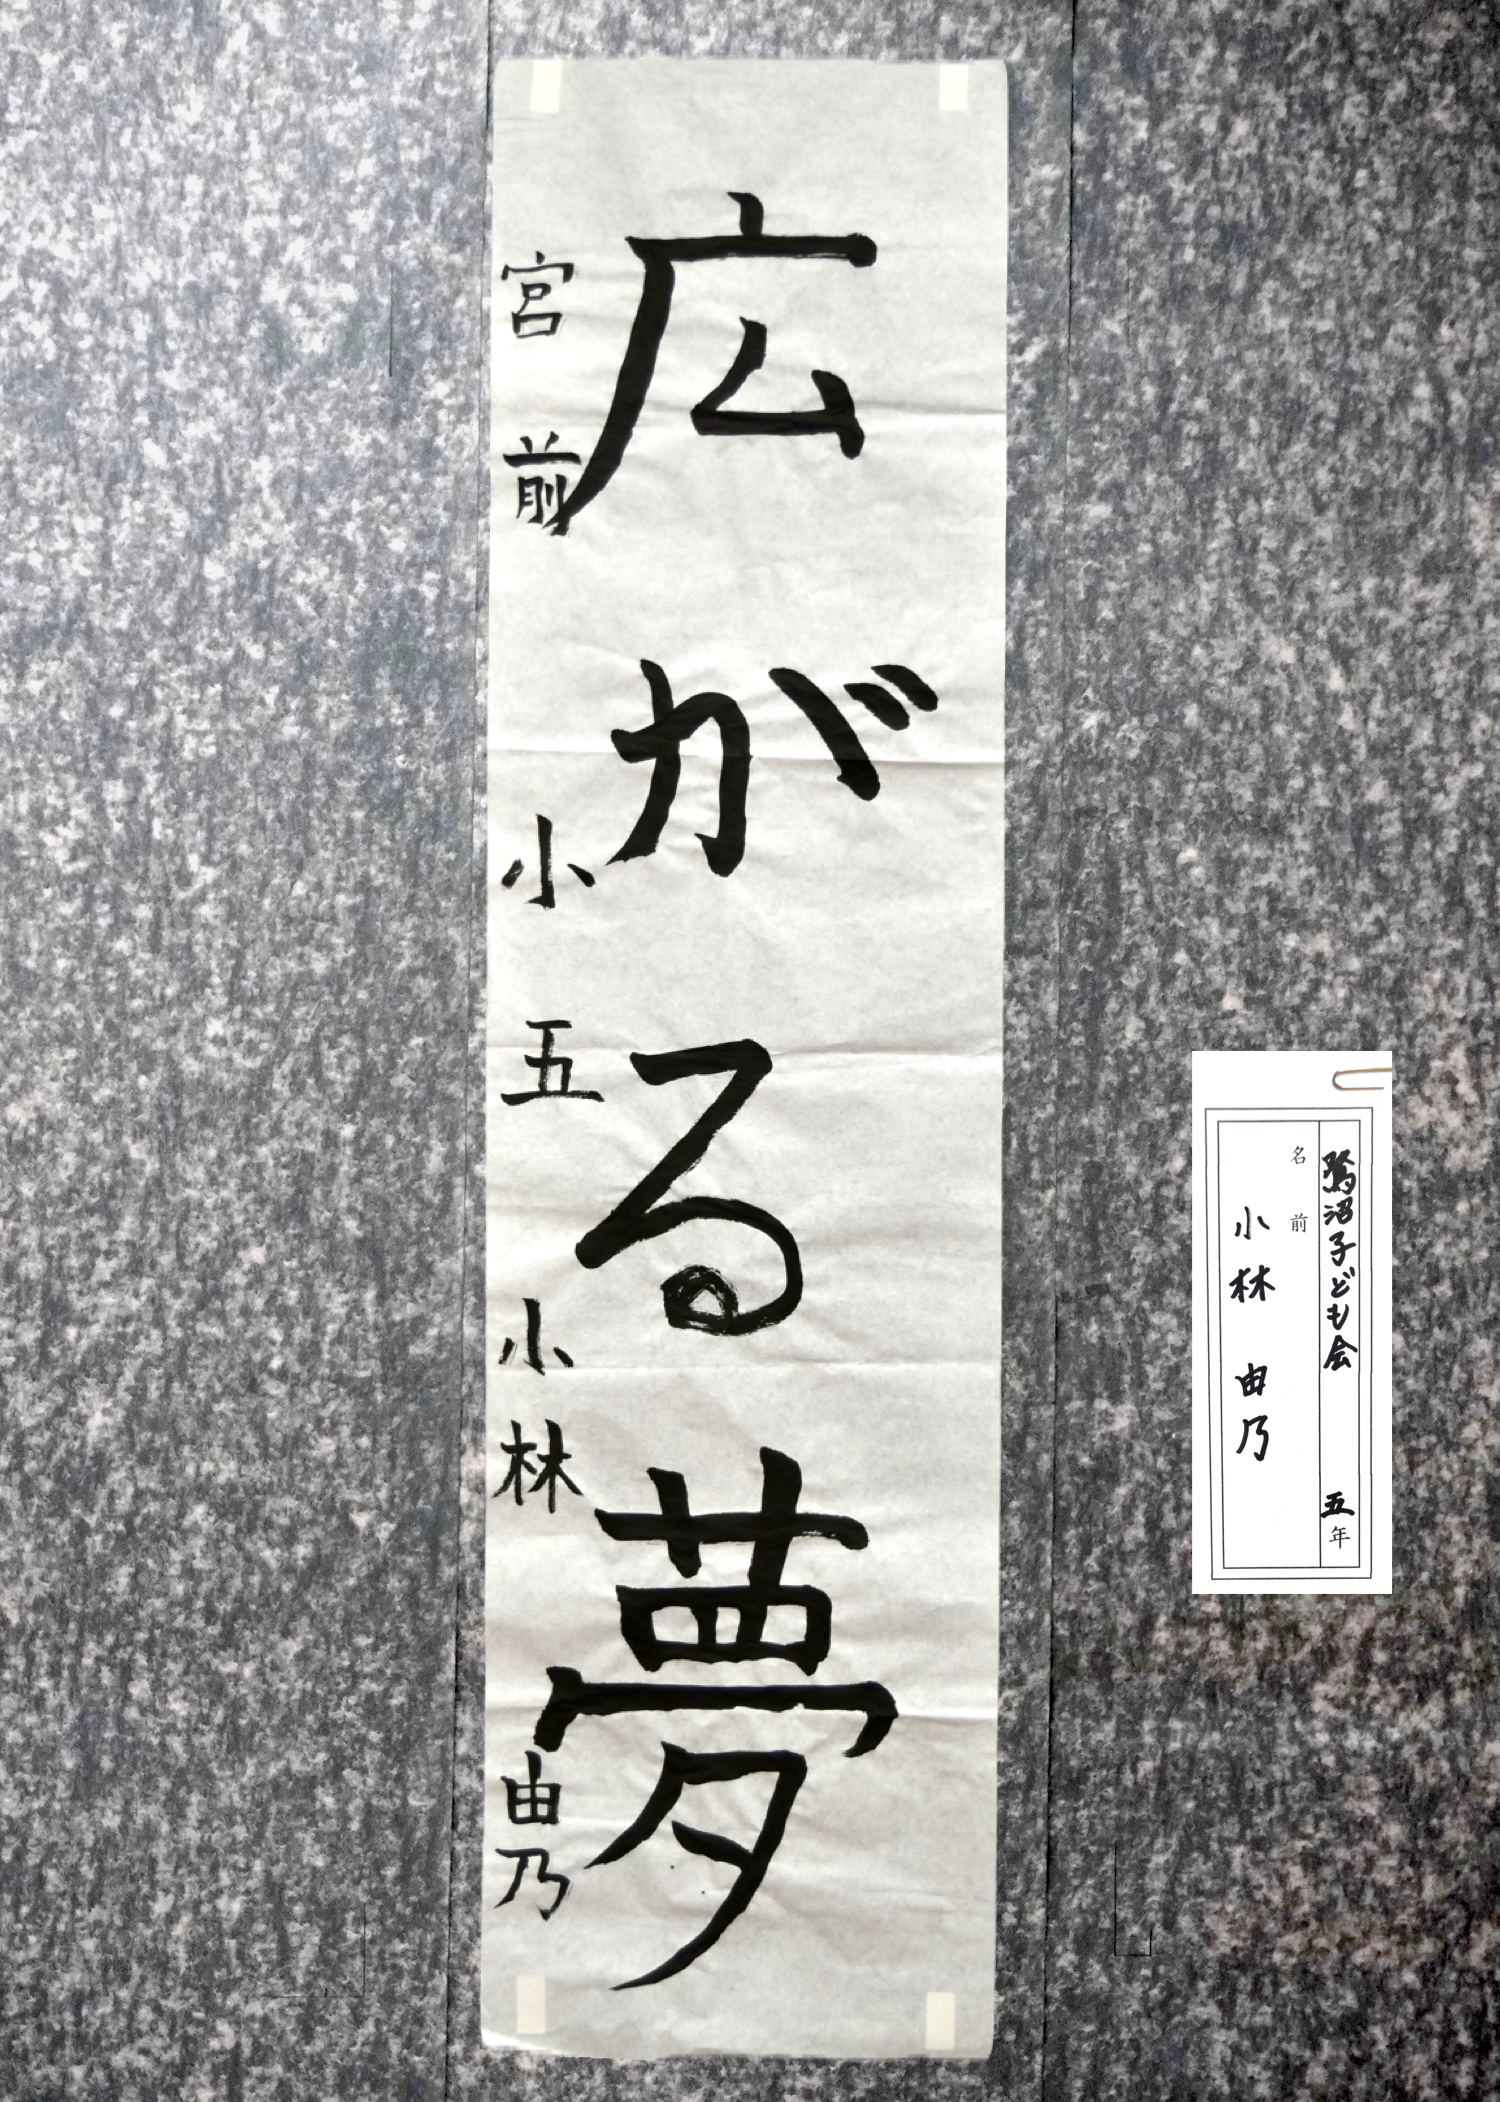 広がる夢
宮前小五小林由乃
鷺沼子ども会 五年
名前
小林由乃